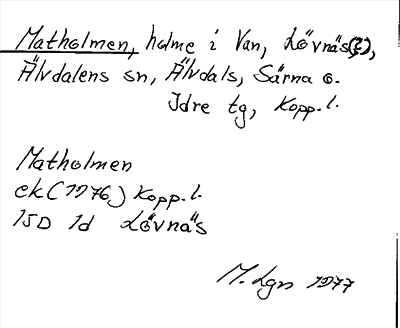 Matholmen, holme i Van, Lövnäs(?),
Älvdalens sn, Älvdals, Särna o.
Idre tg, Kopp.l.
Matholmen
ek (1976) Kopp.l.
15D 1d Lövnäs
M. Lgn 1977